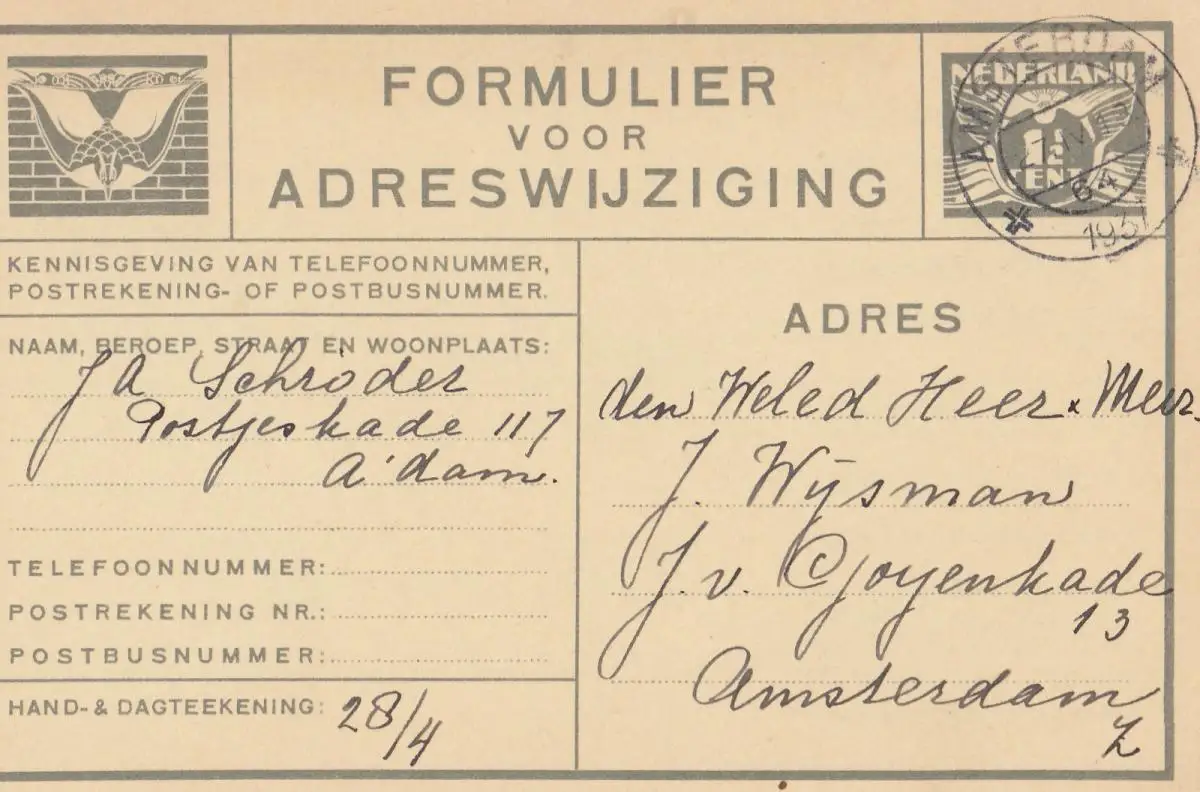 FORMULIER
VOOR
ADRESWIJZIGING
NEDERLAND
1½
CENT
AMSTERDAM
64
1937
KENNISGEVING VAN TELEFOONNUMMER,
POSTREKENING- OF POSTBUSNUMMER.
NAAM, BEROEP, STRAAT EN WOONPLAATS:
J A Schröder
Postjeskade 117
A'dam.
TELEFOONNUMMER:
POSTREKENING NR.:
POSTBUSNUMMER:
HAND- & DAGTEEKENING: 28/4
ADRES
den Weled Heer
J. Wijsman
J. v. Goyenkade
13
Amsterdam
Z